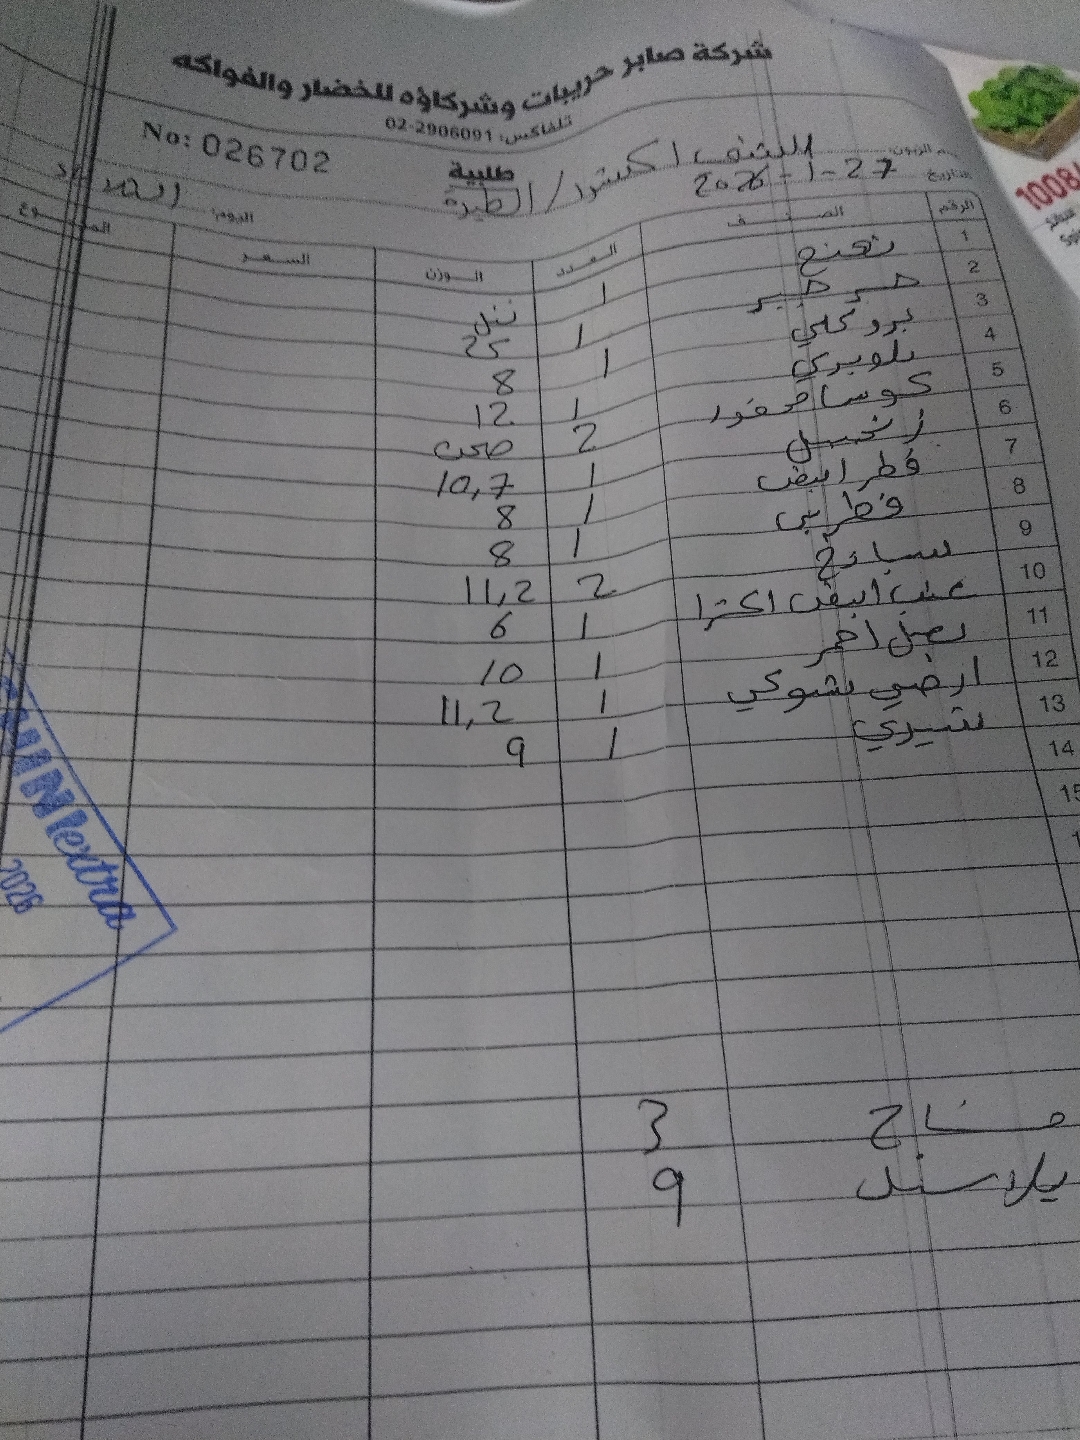 شركة صابر حريبات وشركاؤه للخضار والفواكه
تلفاكس: 02-2906091
No: 026702
طلبية
الشف اكسترا / الطيرة
التاريخ: 27-1-2026
اليوم:
الرقم الصنف العدد الوزن السعر
1 نعنع 1
2 1 25
3 بروكلي 1 8
4 بلوبري 1 12
5 كوسا محفور 2 صحن
6 زنجبيل 1 10,7
7 فطر ابيض 1 8
8 فطر بني 1 8
9 سبانخ 2 11,2
10 عنب ابيض اكسترا 1 6
11 بصل احمر 1 10
12 ارضي شوكي 1 11,2
13 شيري 1 9
14
15
3
9
extra
2026
1008/